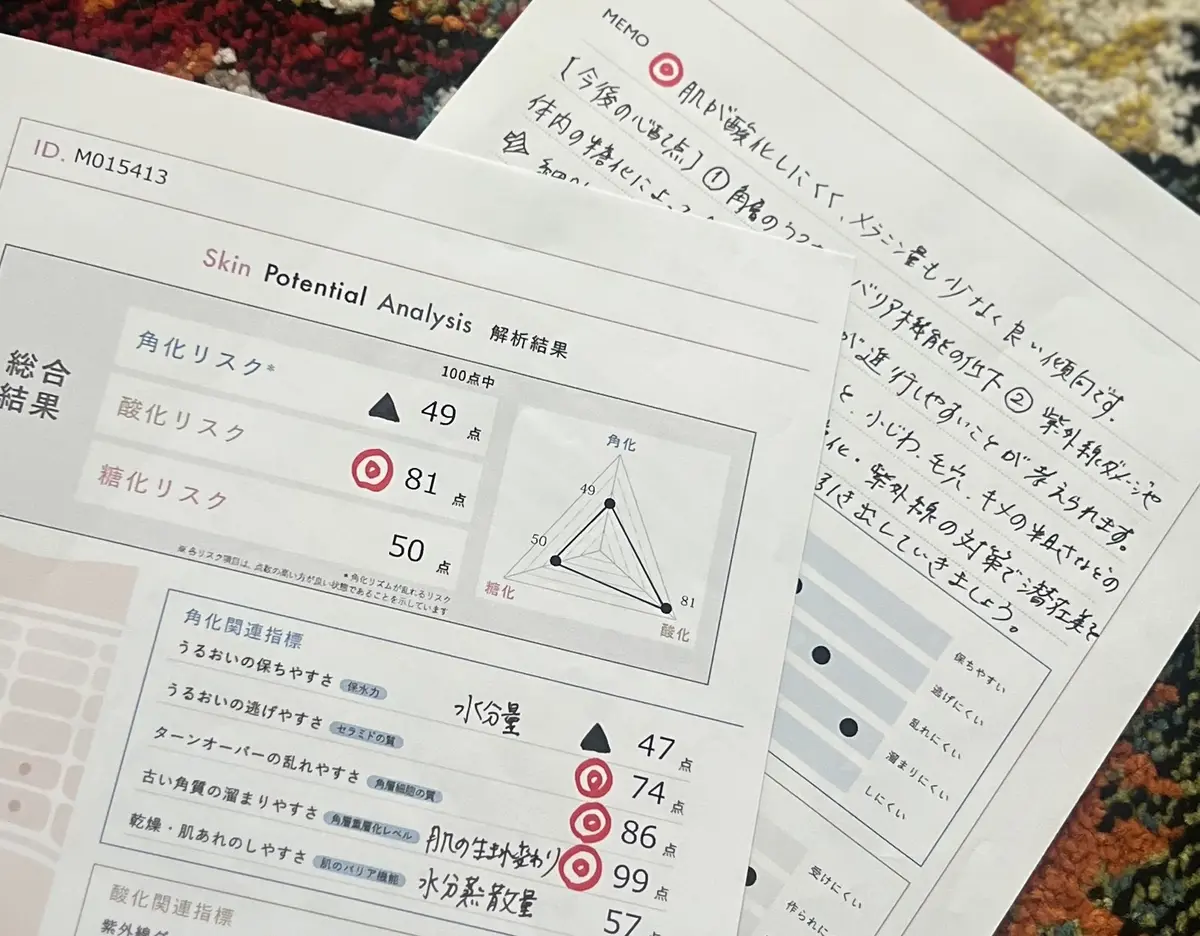 ID. M015413
Skin Potential Analysis 解析結果
総合結果
100点中
角化リスク* ▲ 49 点
酸化リスク ◎ 81 点
糖化リスク 50 点
*角化リズムが乱れるリスク
※各リスク項目は、点数の高い方が良い状態であることを示しています
角化
49
50
糖化
81
酸化
角化関連指標
うるおいの保ちやすさ 保水力 水分量 ▲ 47 点
うるおいの逃げやすさ セラミドの質 ◎ 74 点
ターンオーバーの乱れやすさ 角層細胞の質 ◎ 86 点
古い角質の溜まりやすさ 角層重層化レベル 肌の生まれ変わり ◎ 99 点
乾燥・肌あれのしやすさ 肌のバリア機能 水分蒸散量 57
酸化関連指標
紫外線ダ
MEMO
◎ 肌が酸化しにくく、メラニン量も少なく良い傾向です。
【今後の心配点】① 角層のうる
バリア機能の低下 ② 紫外線ダメージや
体内の糖化によ
が進行しやすいことが考えられます。
と、小じわ、毛穴、キメの粗さなどの
化・紫外線の対策で潜在美を
引き出していきましょう。
保ちやすい
逃げにくい
乱れにくい
溜まりにくい
しにくい
受けにくい
作られに